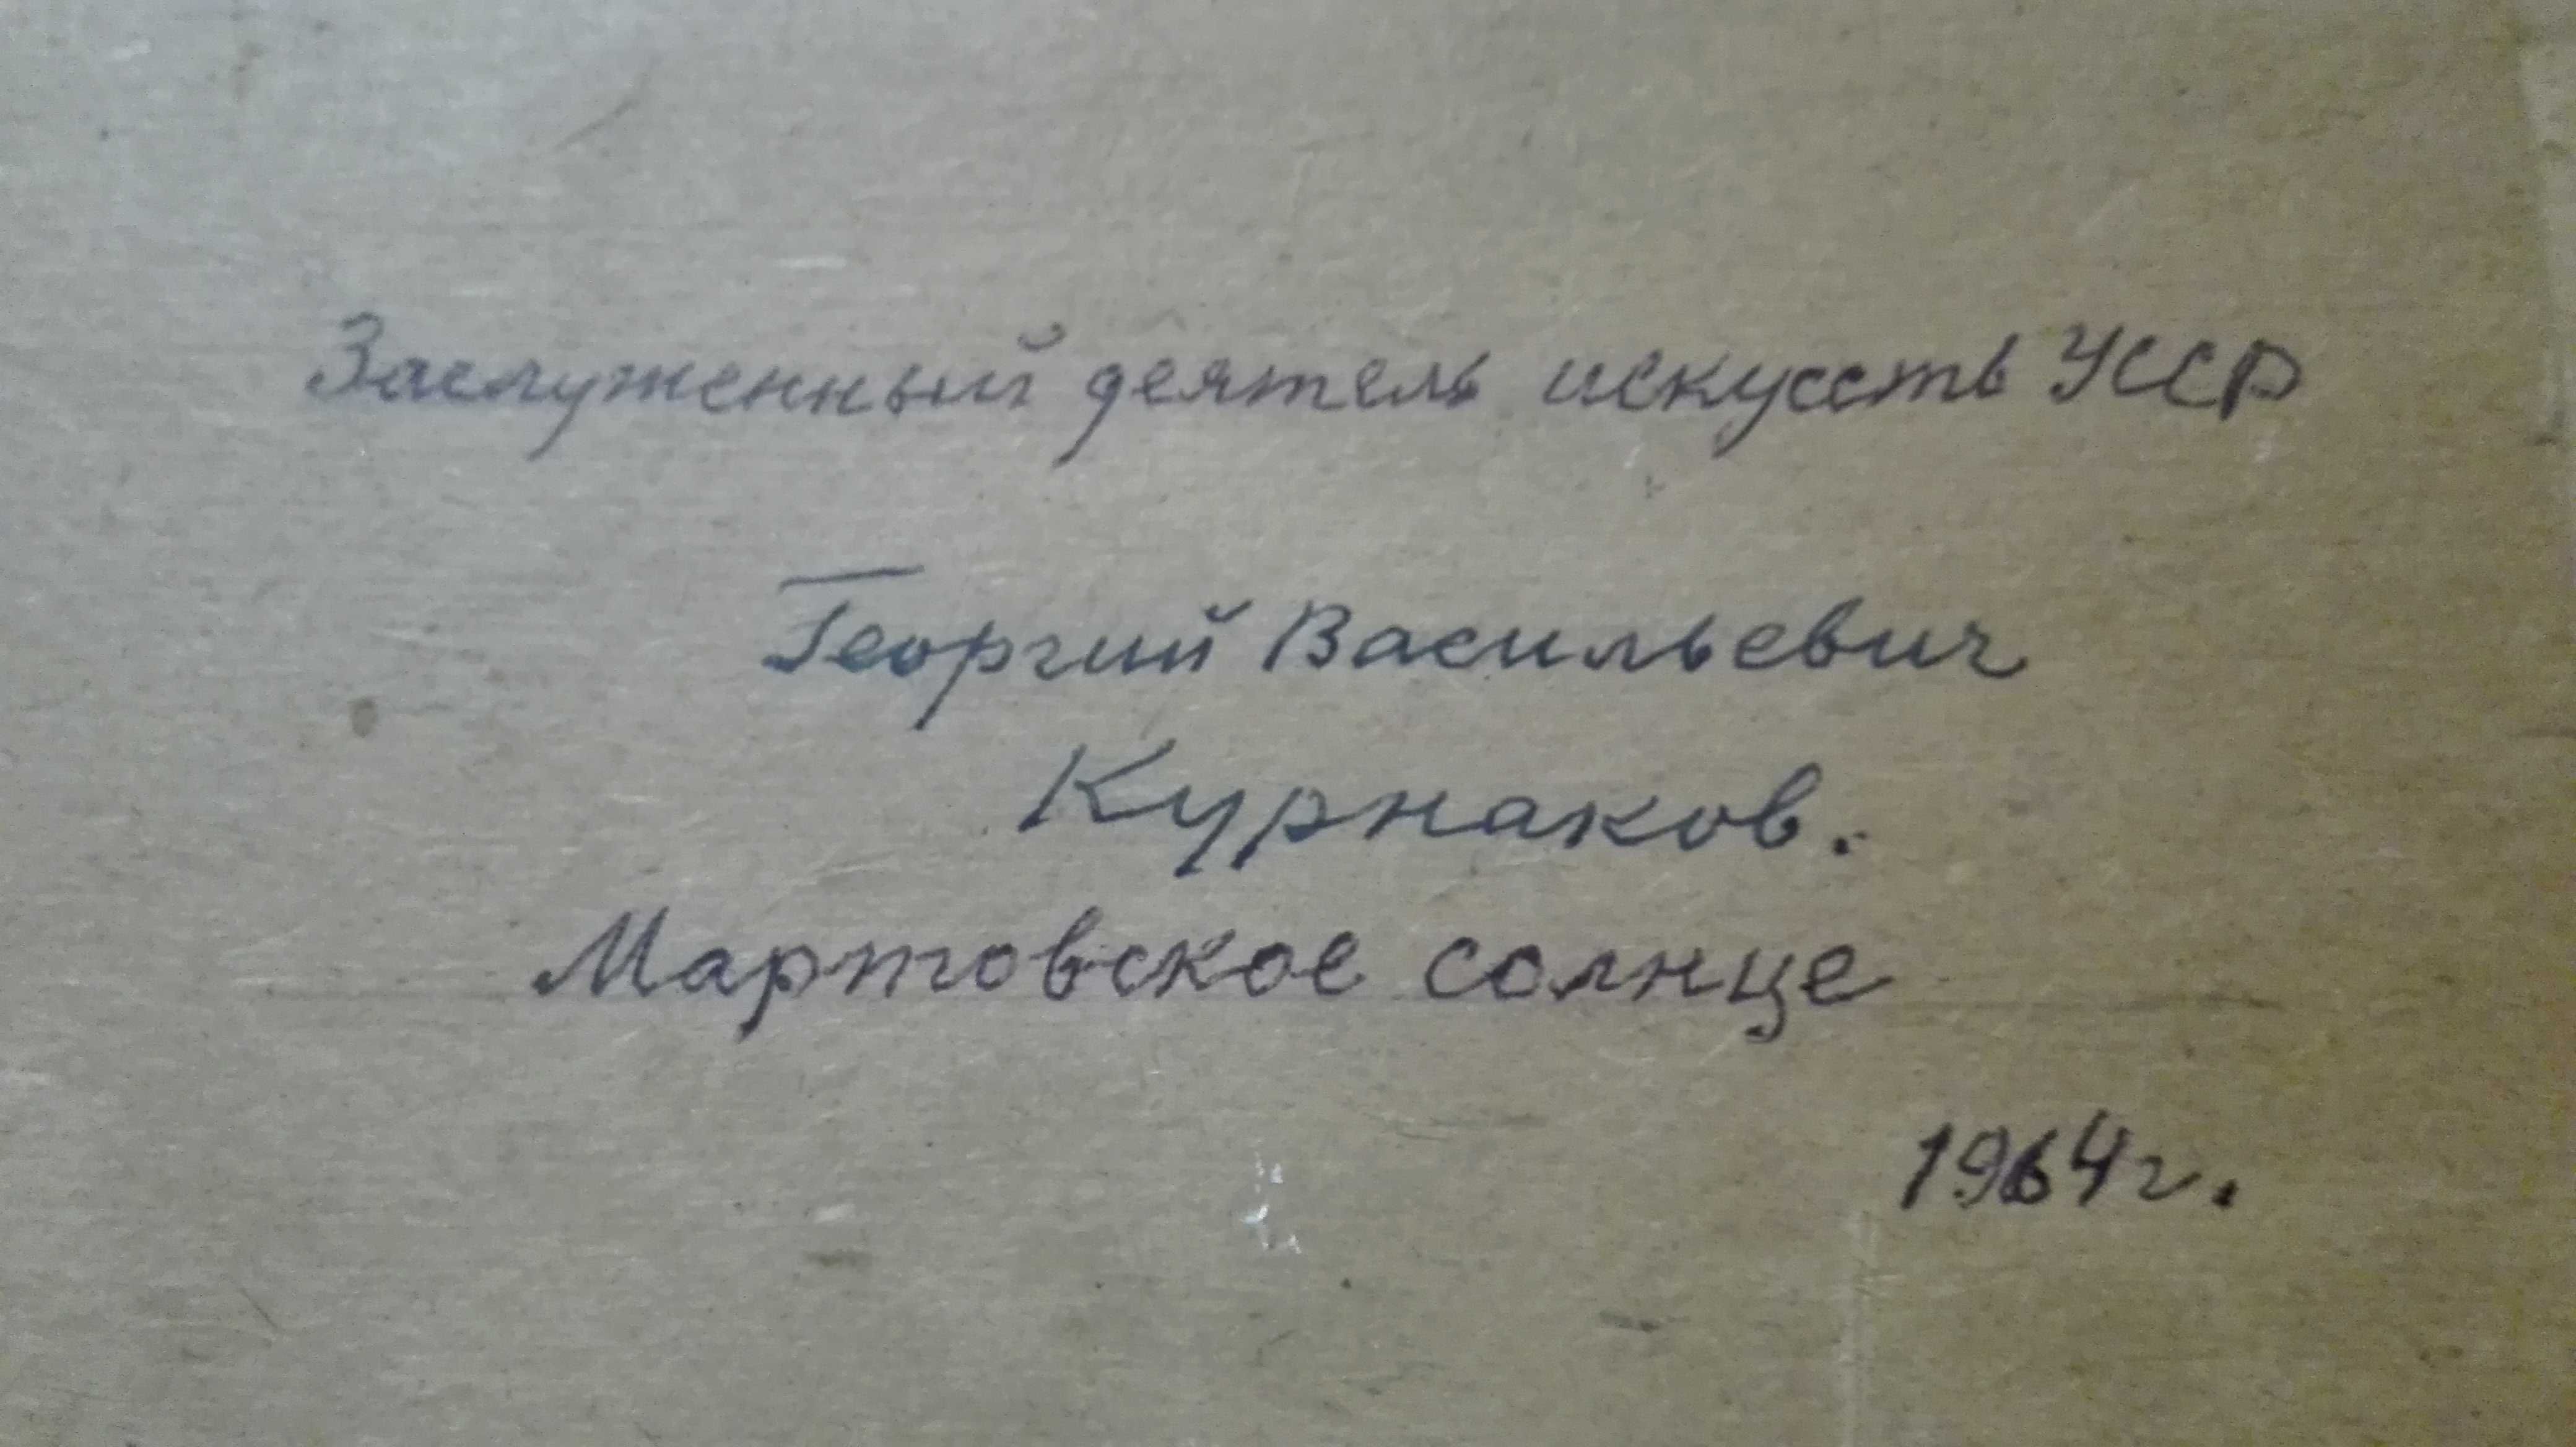 Заслуженный деятель искусств УССР
Георгий Васильевич
Курнаков.
Мартовское солнце
1964г.